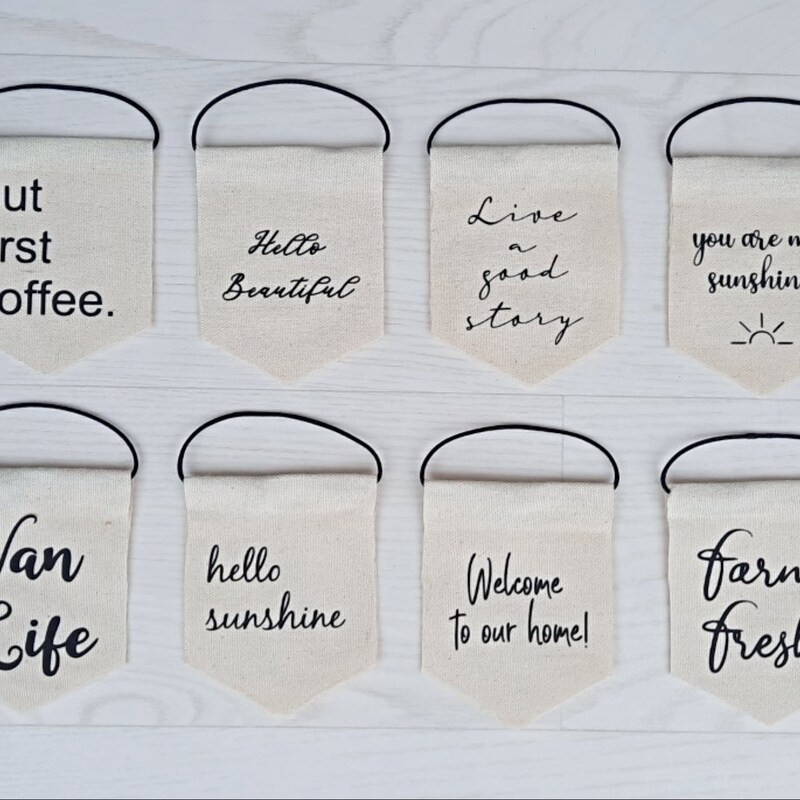 ut
rst
offee.
Hello
Beautiful
Live
a
good
story
you are m
sunshin
Van
Life
hello
sunshine
Welcome
to our home!
farm
fresh